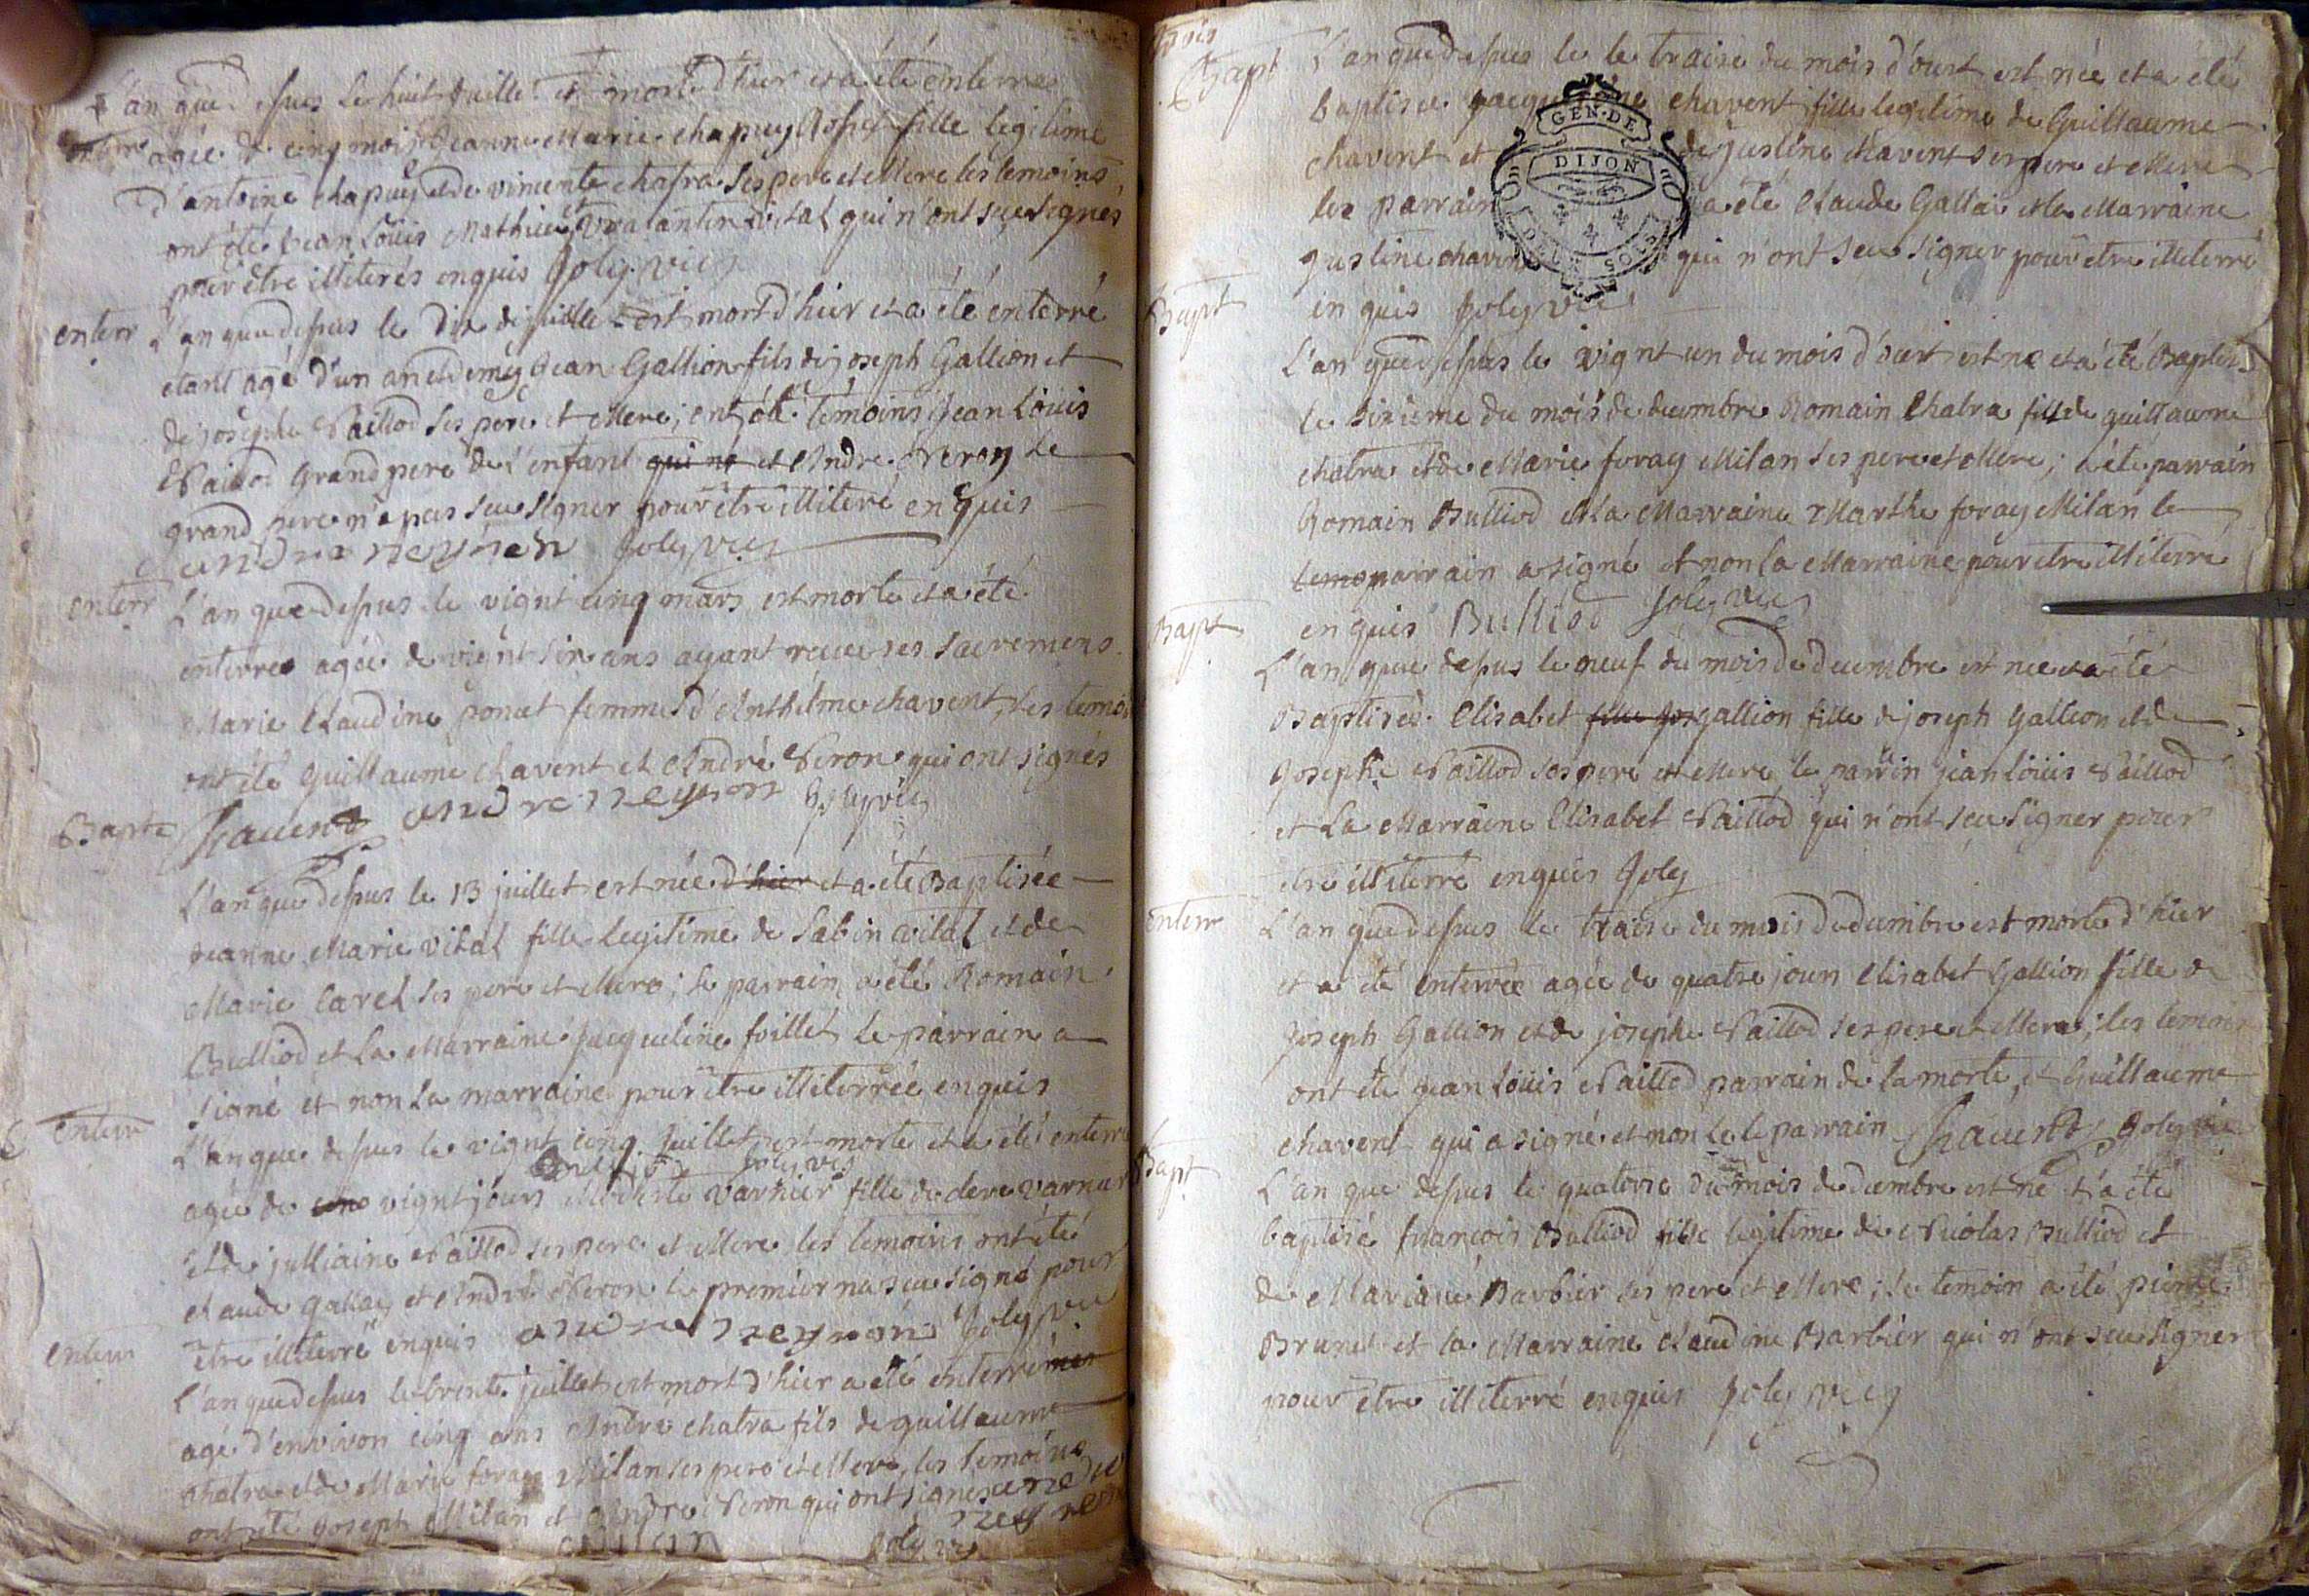 L'an que depus le huit juillet est morte d'hier et a été enterree
enterr agée de cinq mois Jeanne Marie chapuy fille legitime
d'antoine chapuy et de vincente chatra ses pere et Mere les temoins
ont été Jean Loüis Mathieu et vital qui n'ont sceu signes
pour être illiterés enquis Joly vic
enterr L'an que depus le Dix de juillet est mort d'hier et a été enterré
etant agé d'un an et demÿ Jean Gallion fils de joseph Gallion et
de josephe Naillod ses pere et Mere; ont été temoins Jean Loüis
Naillod Grand pere de l'enfant qui ne et Andre Neron Le
grand pere n'a pas sceu signer pour être illiteré enquis
andre neyron Joly vic
enterr L'an que depus le vignt cinq mars est morte et a été
enterree agée de vignt six ans ayant receu ses sacremens
Marie Claudine poncet femme d'Anthelme chavent, les temoi
ont été Guillaume chavent et André Neron qui ont signés
Bapte Chavent andre neyron Joly vic
L'an que depus le 13 juillet est née d'hier et a été Baptisée
Jeanne Marie vital fille legitime de Sabin vital et de
Marie Carel ses pere et Mere; le parrain a été Romain
Bulliod et La Marraine Jacqueline foillet Le parrain a
signé et non La marraine pour être illiterrée enquis
Bulliod Joly vic
enterr L'an que depus le vignt cinq Juillet est morte et a été enterre
agée de vignt jours Modeste varnier fille de varnier
et de julliaine Naillod ses pere et Mere les temoins ont été
claude Gallay et André Neron le premier na sceu signé pour
être illiterré enquis andre neyron Joly vic
enterr L'an que depus le trente juillet est mort d'hier a été enterré
agé d'environ cinq ans André chatra fils de guillaume
chatra et de Marie foray Milan ses pere et Mere, les temoins
ont été Joseph Milan et Andre Neron qui ont signés andre
neyron
milan Joly vic
Bapt L'an que depus le le traise du mois d'oust est née et a été
Baptisée chavent fille legitime de Guillaume
chavent et de justine chavent ses pere et Mere
les parrain a été Claude Gallai et la Marraine
Justine chavent qui n'ont sceu signer pour etre illeterré
enquis Joly vic
GEN·DE
DIJON
DEUX SOLS
Bapt L'an que depus le vignt un du mois d'oust est né et a été Baptisé
le sixieme du mois de decembre Romain Chatra fils de guillaume
chatra et de Marie foray Milan ses pere et Mere; a été parrain
Romain Bulliod et La Marraine Marthe foray Milan le
temo parrain a signé et non La Marraine pour etre illiterré
enquis Bulliod Joly vic
Bapt L'an que depus le neuf du mois de decembre est née et a été
Baptisée Elisabet fille jos gallion fille de joseph Gallion et de
Josephe Naillod ses pere et Mere le parrin jean loüis Naillod
et La Marraine Elisabet Naillod qui n'ont sceu signer pour
etre illiterré enquis Joly
enterr L'an que depus le traise du mois de decembre est morte d'hier
et a été enterrée agée de quatre jours Elisabet Gallion fille de
Joseph Gallion et de josephe Naillod ses pere et Mere; les temoin
ont été jean Loüis Naillod parrain de la morte, et Guillaume
chavent qui a signé et non le le parrain Chavent Joly vic
Bapt L'an que depus le quatorse du mois de decembre est né et a été
baptisé francois Bulliod fils legitime de Nicolas Bulliod et
de Mariane Barbier ses pere et Mere; le temoin a été pierre
Brunet et la Marraine Claudine Barbier qui n'ont sceu signer
pour etre illiterré enquis Joly vic